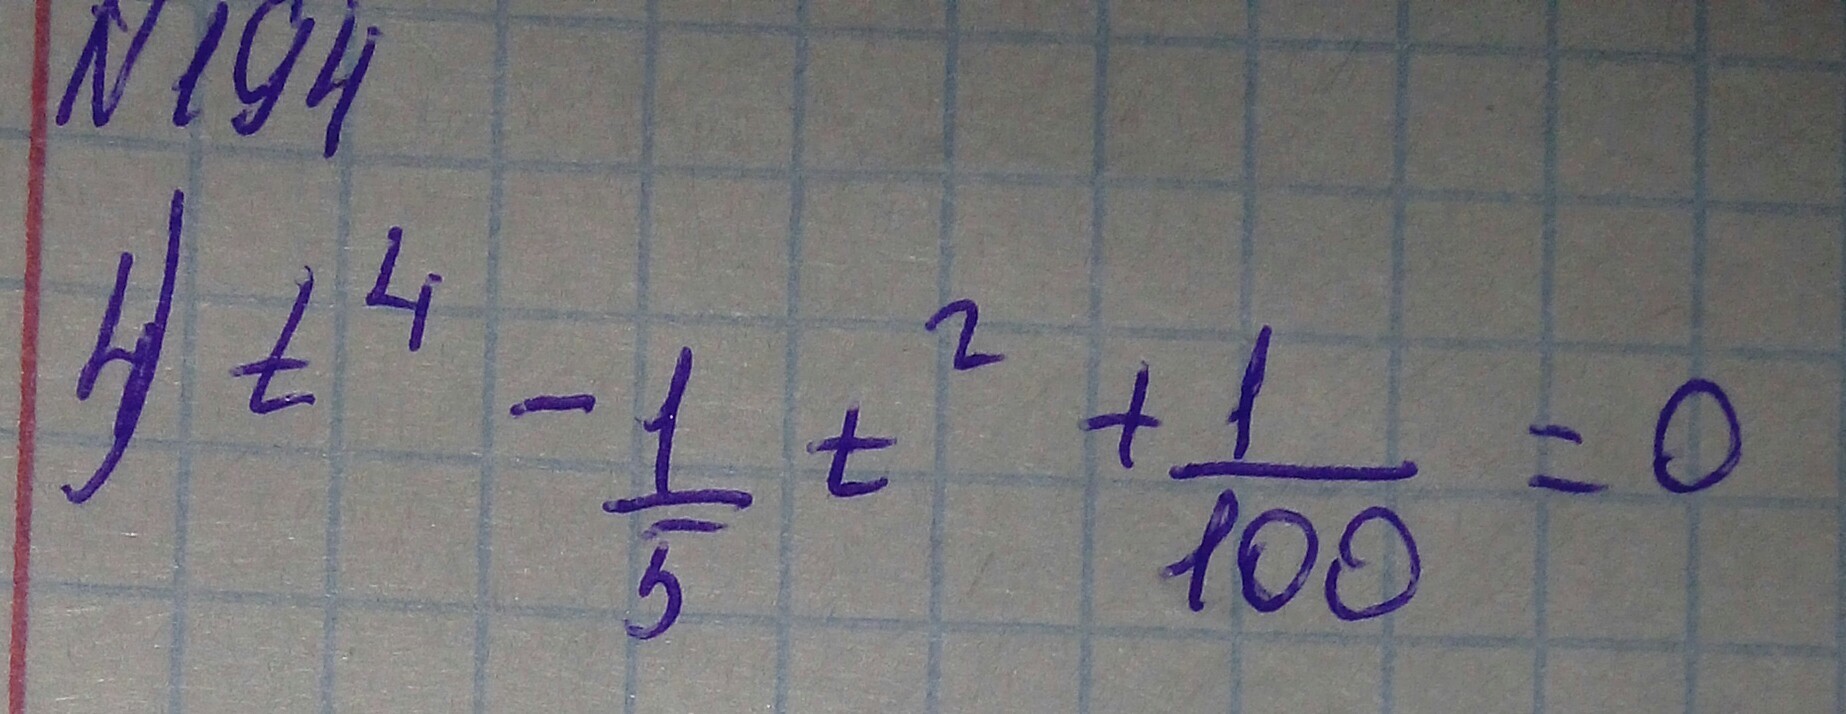 N194
4) t⁴ - 1/5 t² + 1/100 = 0